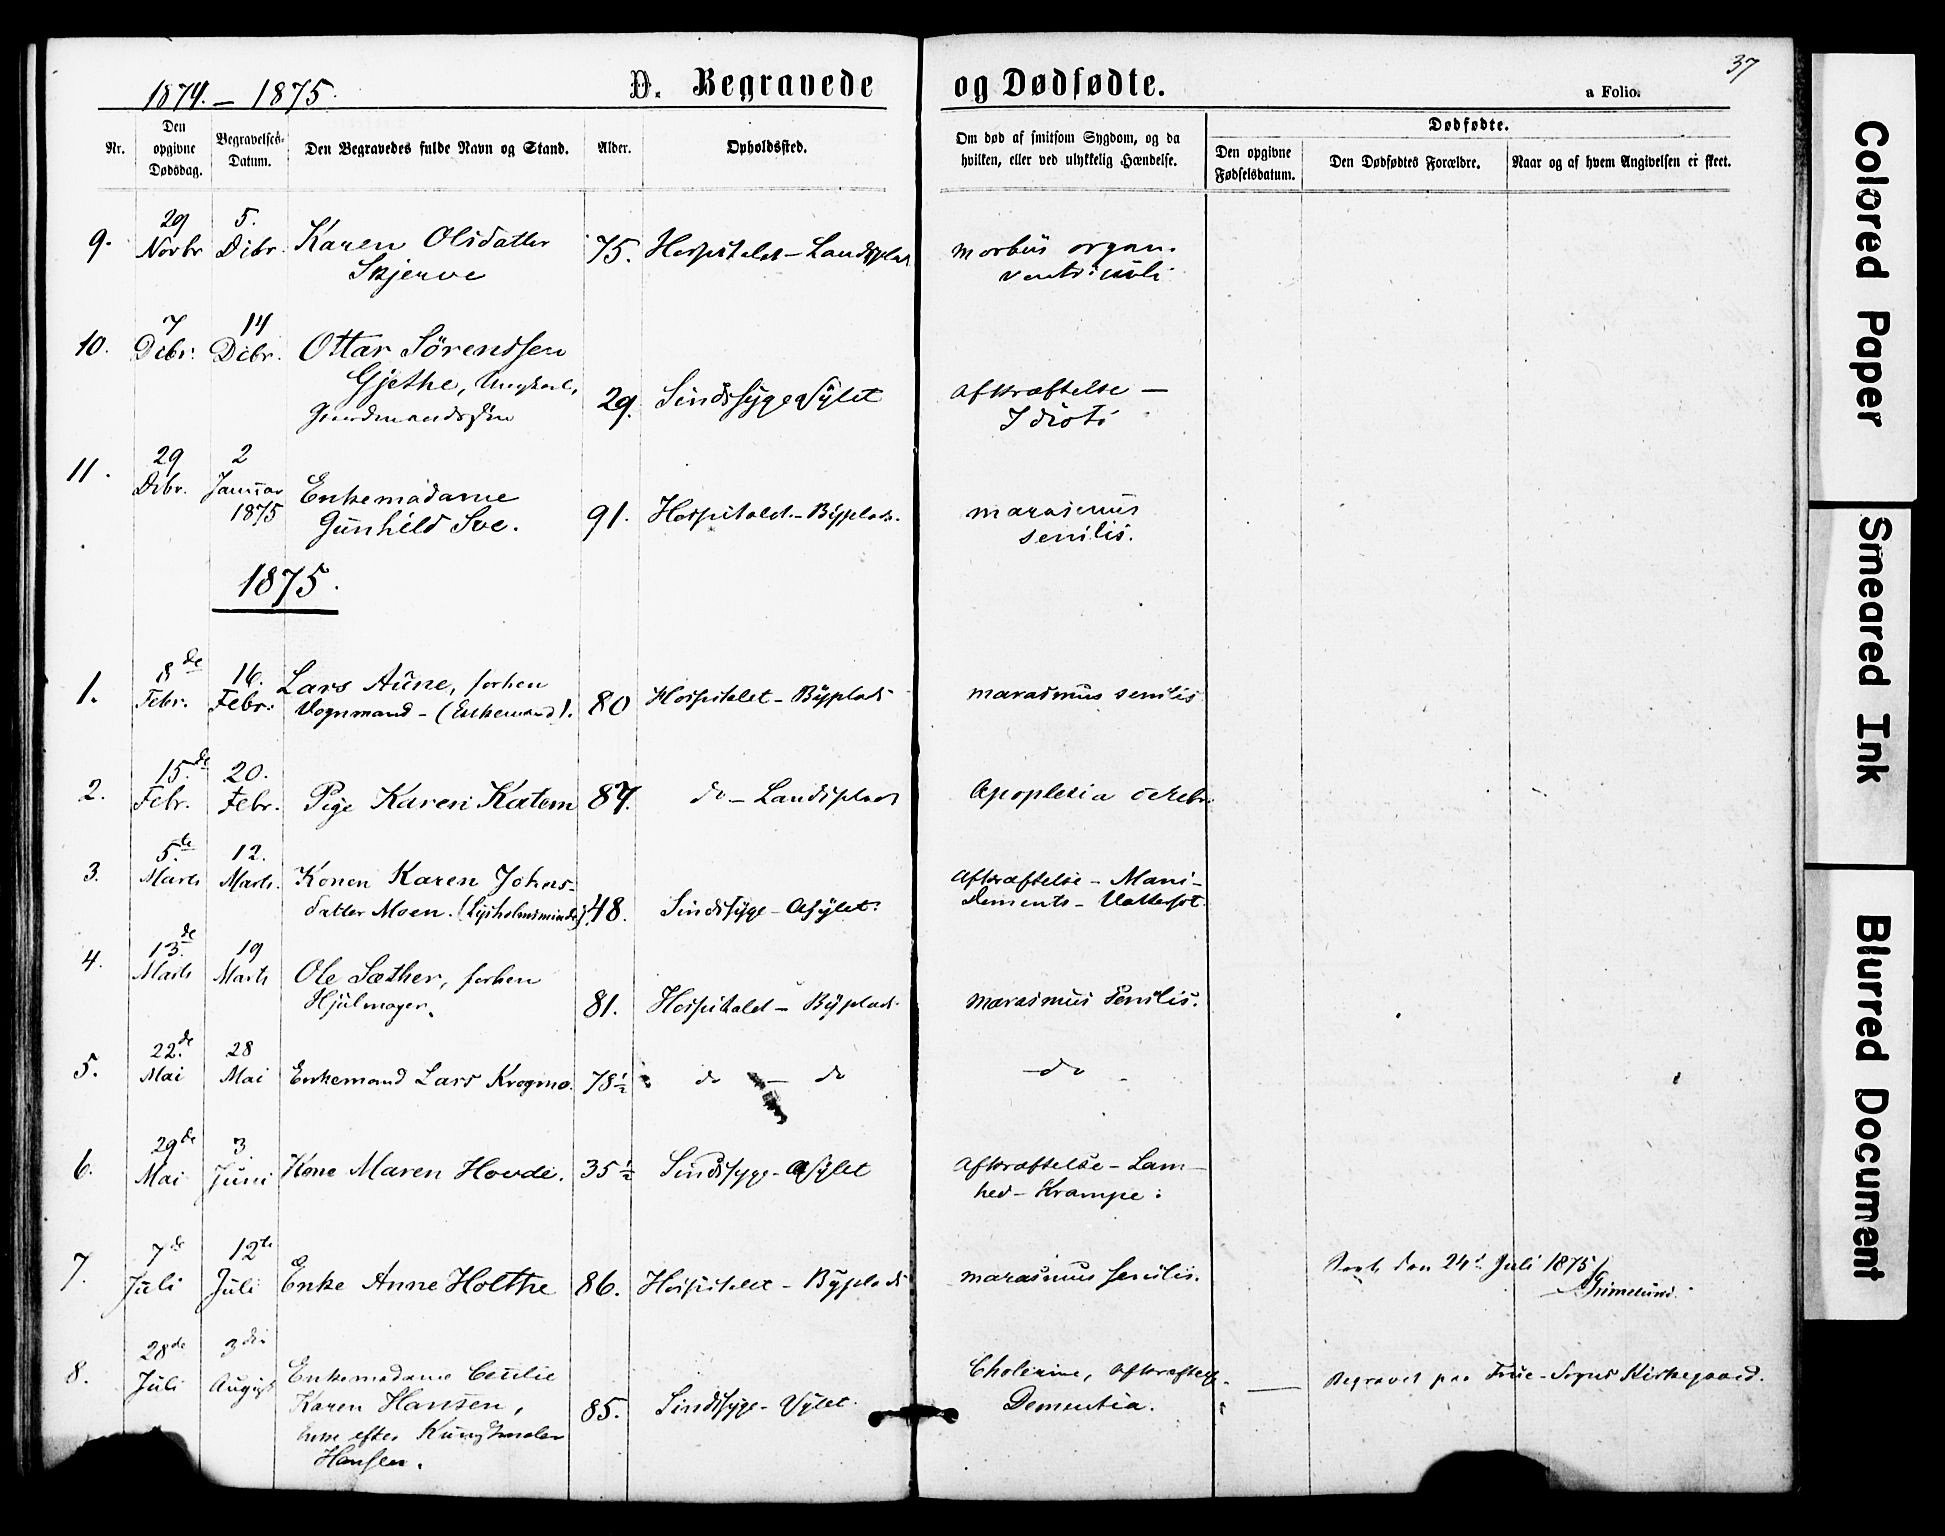 1874. – 1875.
D. Begravede og Dødfødte.
37
a Folio.
Nr.
Den opgivne Dødsdag.
Begravelses-Datum.
Den Begravedes fulde Navn og Stand.
Alder.
Opholdssted.
Om død af smitsom Sygdom, og da hvilken, eller ved ulykkelig Hændelse.
Dødfødte.
Den opgivne Fødselsdatum.
Den Dødfødtes Forældre.
Naar og af hvem Angivelsen er skeet.
9. 29 Novbr 5. Dcbr. Karen Olsdatter 75. Hospitalet – Landsplads morbus organ.
Skjerve ventriculi
10. 7 Dcbr. 14 Dcbr. Ottar Sörendsen
Gjethe, Ungkarl, 29. Sindssyge Asylet afkræftelse –
Gaardmandssøn Idioti
11. 29 Dcbr. 2 Januar 1875 Enkemadame
Gunhild Sve. 91. Hospitalet – Byplads. marasmus
senilis.
1875.
1. 8de Febr. 16. Febr. Lars Aune, forhen
Vognmand – (Enkemand). 80 Hospitalet – Byplads marasmus senilis
2. 15.de Febr. 20. Febr. Pige Karen Katem 87. do – Landsplads Apoplexia cerebri
3. 5.de Marts 12. Marts. Konen Karen Johns-
datter Moen. (Lysholmsminde). 48. Sindssyge – Asylet. afkræftelse – Mani –
Dements – Vattersot.
4. 13.de Marts 19 Marts Ole Sæther, forhen
Hjulmager. 81. Hospitalet – Byplads. marasmus senilis.
5. 22.de Mai 28 Mai Enkemand Lars Krogmo. 78½ do – do – do –
6. 29de Mai 3. Juni Kone Maren Hovde. 35½ Sindssyge – Asylet afkræftelse – Lam-
hed – Krampe.
7. 7de Juli 12te Juli Enke Anne Holthe 86. Hospitalet – Byplads marasmus senilis.
den 24d Juli 1875
Grimelund.
8. 28de Juli 3die August Enkemadame Cecilie
Karen Hansen, 85. Sindssyge – Asylet. Cholerine, afkræftelse
Dementia.
Enke efter
Hansen.
Begravet paa Frue-Sogns Kirkegaard.
Colored Paper
Smeared Ink
Blurred Document